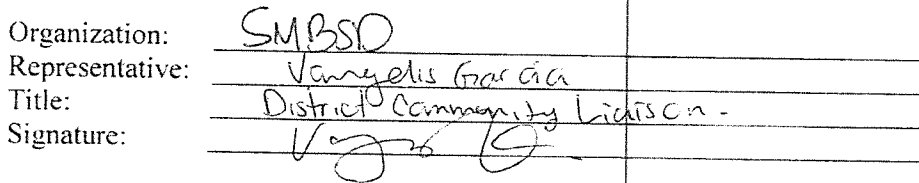 Organization: SMBSD
Representative: Vangelis Garcia
Title: District Community Liaison -
Signature: